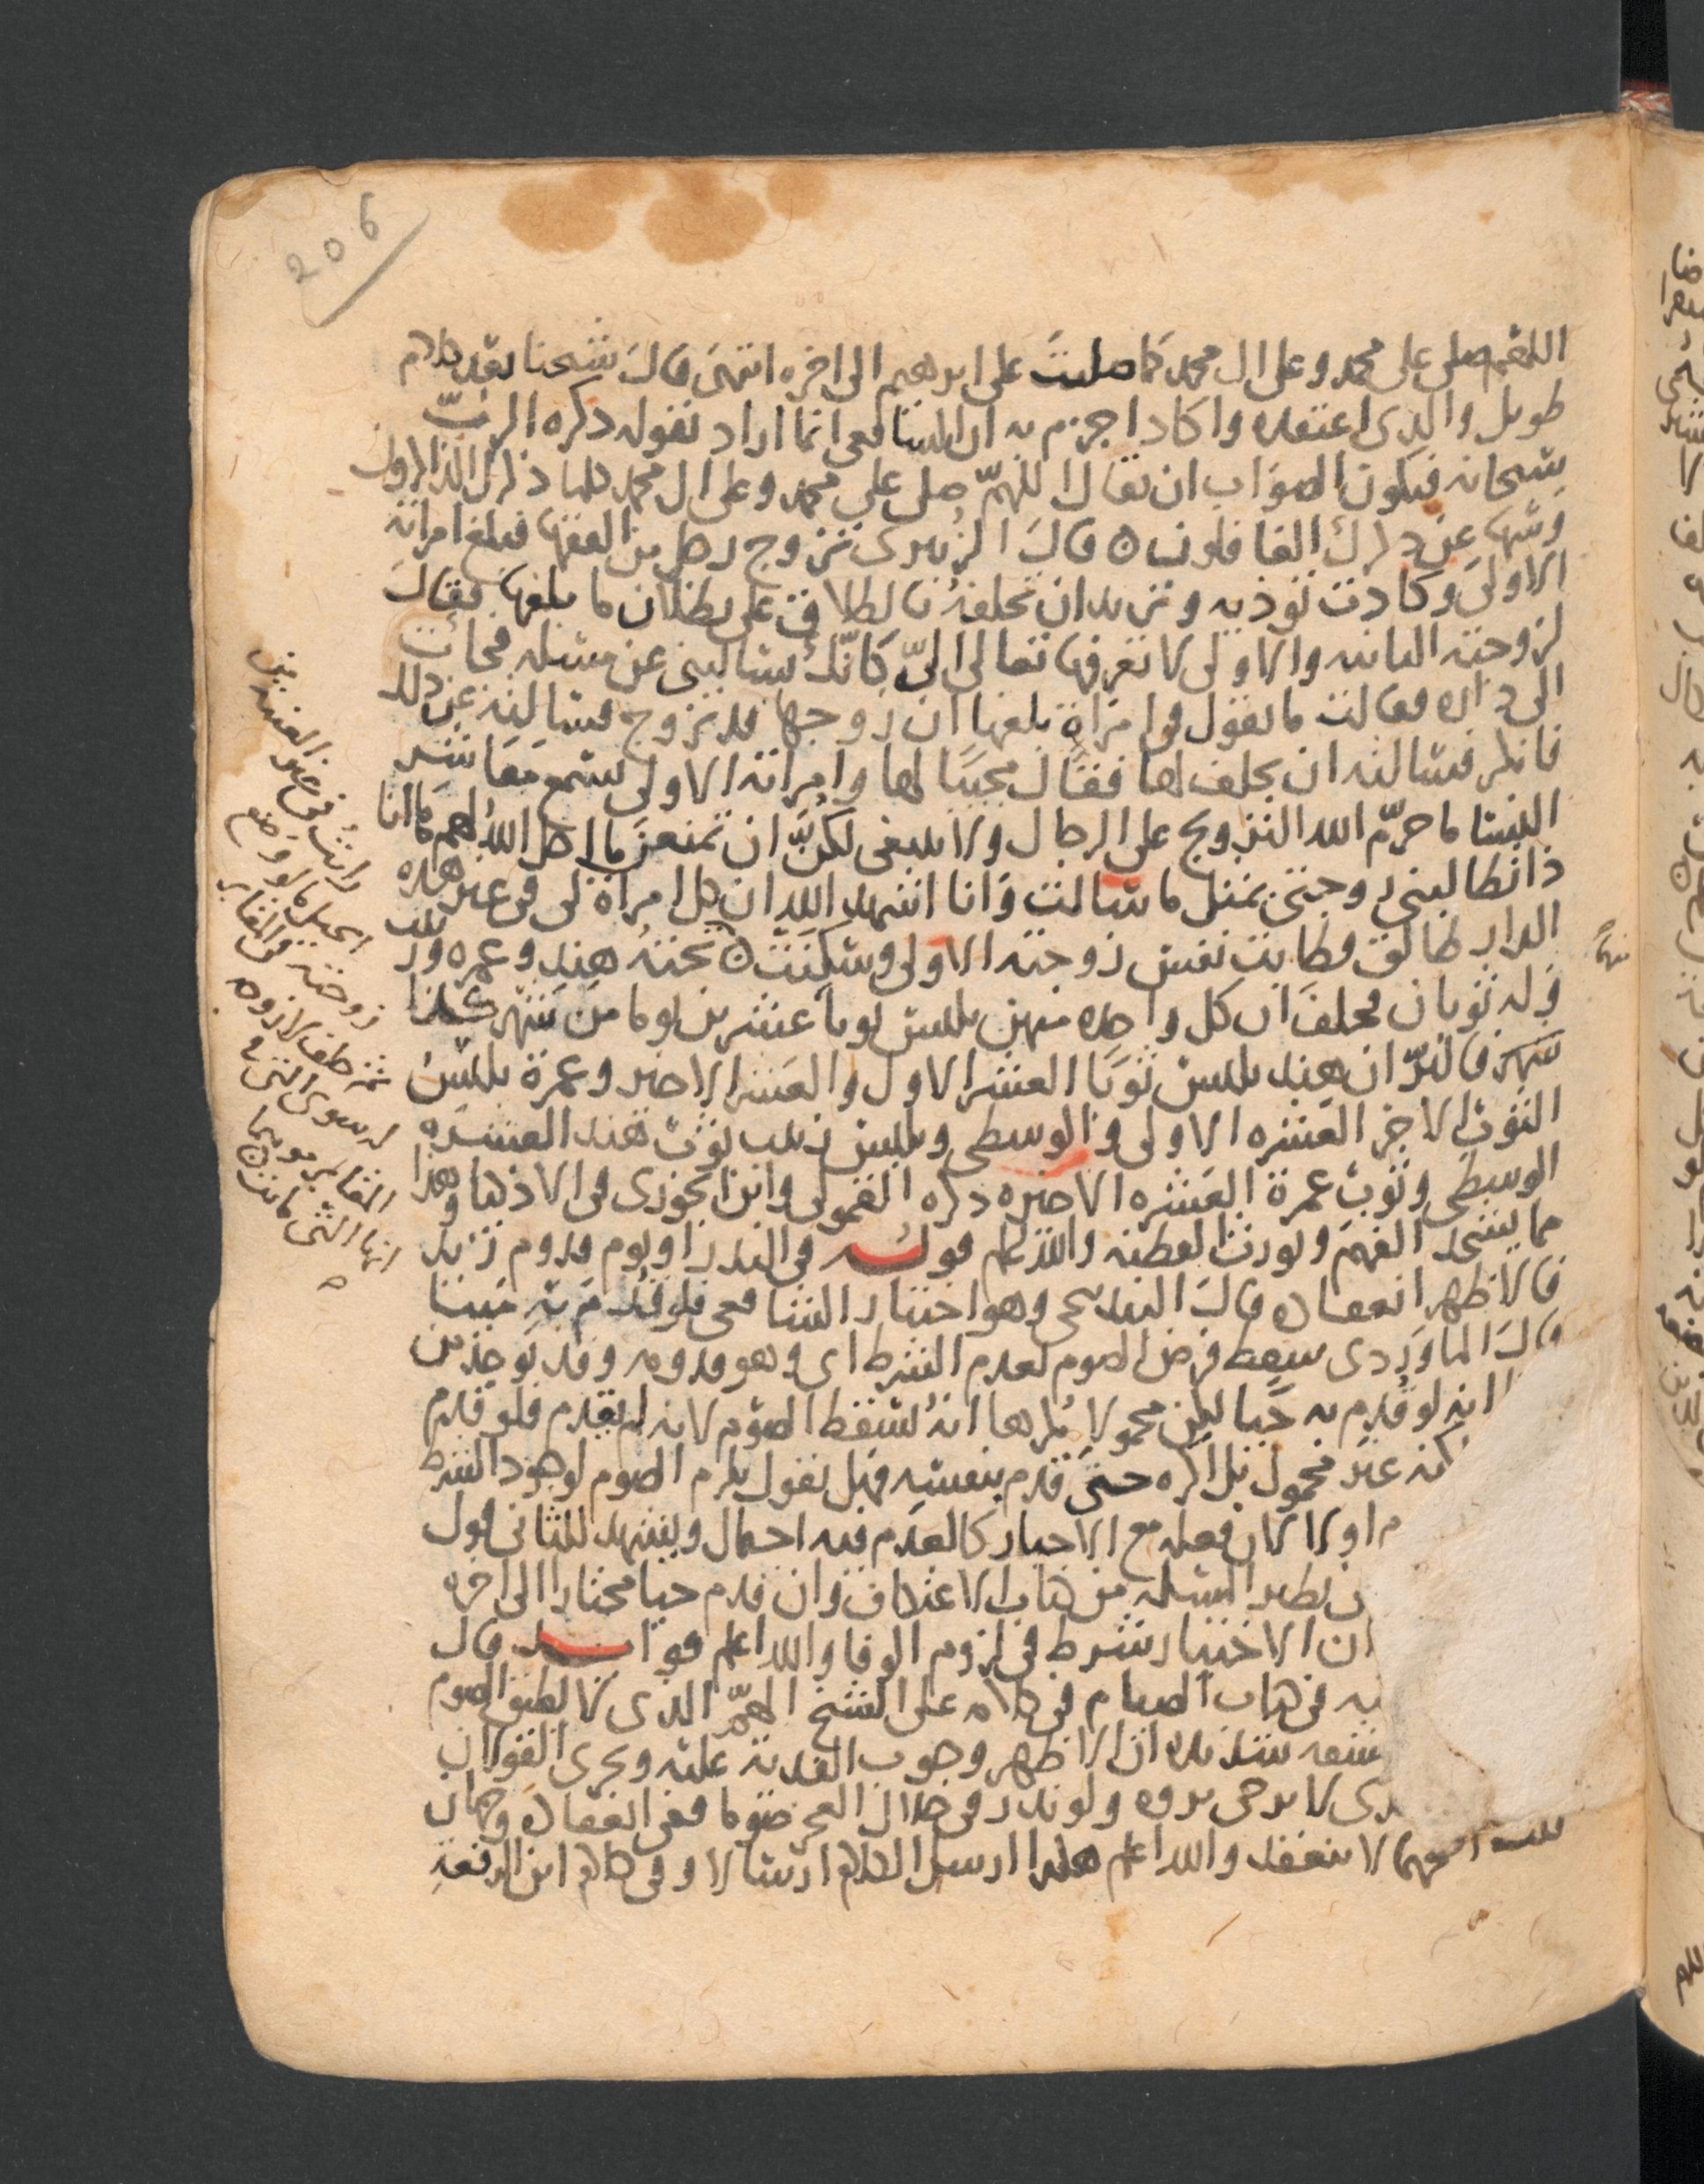 206
اللهم صلى على محمد وعلى ال محمد كما صليت على ابرهيم الى اخره انتهى قال شيخنا بعد كلام
طويل والذى اعتقده واكاد اجزم به ان الشافعى انما اراد بقوله ذكره الرب
سبحانه فيكون الصواب ان يقال اللهم صلى على محمد وعلى ال محمد كلما ذكرك الذاكرون
وسها عن ذكرك الغافلون ه قال الزبيرى تزوج رجل من الفقها فبلغ امراته
الاولى وكادت توذيه وتريد ان تحلفه بالطلاق على بطلان ما بلغها فقال
لزوجته الثانيه والاولى لا تعرفها تعالى الىّ كانك تسالينى عن مسله فجات
الى داره فقالت ما تقول فى امراة بلغها ان زوجها قد تزوج فسالته عن ذلك
فانكر فسالته ان يحلف لها فقال مجيبا لها وامراته الاولى تسمع معاشر
النسا ما حرّم الله التزويج على الرجال ولا ينبغى لكنّ ان تمنعن ما احل الله لهم كما انا
ذا تطالبنى زوجتى بمثل ما سالت وانا اشهد الله ان كل امراة لى فى غير هذه
الدار طالق فطابت نفس زوجته الاولى وسكنت ه تحته هند وعمره وزينب
وله ثوبان فحلف ان كل واحده منهن تلبس ثوبا عشرين يوما من شهر كذا
ان هند تلبس ثوبا العشر الاول والعشر الاخير وعمرة تلبس
الثوب الاخر العشره الاولى والوسطى وتلبس زينب ثوب هند العشره
الوسطى وثوب عمرة العشره الاخيره ذكره القمولى وابن الجوزى فى الاذكيا وهذا
مما يشحذ الفهم ويورث الفطنه والله اعلم قوله فى النذر او يوم قدوم زيد
فالاظهر انعقاده قال البندنيجى وهو اختيار الشافعى فلو قدم به ميتا
قال الماوردى سقط فرض الصوم لعدم الشرط اى وهو قدومه وقد يوخذ من
انه لو قدم به حيا لكن محمولا مكرها انه يسقط الصوم لانه لم يقدم فلو قدم
غير محمول بل اكره حتى قدم بنفسه فهل نقول يلزم الصوم لوجود الشرط
اولا لان فعله مع الاجبار كالعدم فيه احتمال ويشهد للثانى قول
نظير المسله من كتاب الاعتكاف وان قدم حيا مختارا الى اخره
ان الاختيار شرط فى لزوم الوفا والله اعلم فوايد قال
فى كتاب الصيام فى كلامه على الشيخ الهرم الذى لا يطيق الصوم
مشقه شديده ان الاظهر وجوب الفديه عليه ويجرى القولان
لا يرجى بروه ولو نذر فى خلال العجز صوما ففى انعقاده وجهان
لا ينعقد والله اعلم هكذا ارسل الكلام ارسالا وفى كلام ابن الرفعة
منهما
الحيل ما لو وضع
زوجته فى المقابر
ثم حلف لا زوجه
له سوى التى فى
المقابر موهما
انها التى ماتت ه